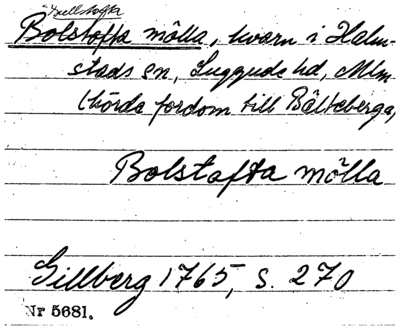 Bolstofta mölla, kvarn i Halm-
stads sn, Luggude hd, Mlm
(hörde fordom till Bälteberga,
Bolstafta mölla
Gillberg 1765, s. 270
Nr 5681.